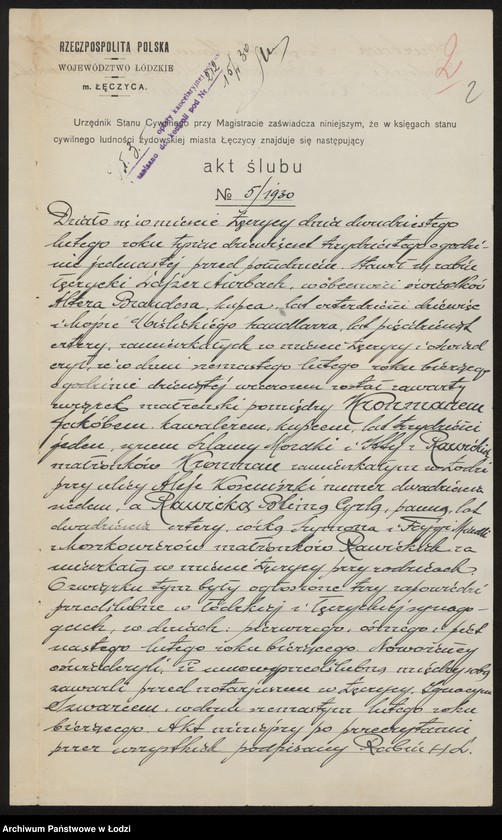 RZECZPOSPOLITA POLSKA
WOJEWÓDZTWO ŁÓDZKIE
m. ŁĘCZYCA.
2
2
15/I 30
Urzędnik Stanu Cywilnego przy Magistracie zaświadcza niniejszym, że w księgach stanu
cywilnego ludności żydowskiej miasta Łęczycy znajduje się następujący
akt ślubu
№ 5/1930
Działo się w mieście Łęczycy dnia dwudziestego
lutego roku tysiąc dziewięćset trzydziestego o godzi-
nie jedenastej przed południem. Stawił się rabin
łęczycki Łajzer Aurbach, w obecności świadków
Abera Brandesa, kupca, lat czterdzieści dziewięć
i Mojże handlarza, lat pięćdziesiąt
cztery, zamieszkałych w mieście Łęczycy i oświad
czył, że w dniu szesnastego lutego roku bieżącego
o godzinie dziewiątej wieczorem został zawarty
związek małżeński pomiędzy Kronmanem
Jakóbem kawalerem, kupcem, lat trzydzieści
jeden, synem Szlamy Mordki i z Rawickich
małżonków Kronman zamieszkałym w Łodzi
przy ulicy Aleje Kościuszki numer dwadzieścia
siedem, a Rawicką Bliną Cyrlą, panną, lat
dwadzieścia cztery, córką Szymona i
z Moszkowiczów małżonków Rawickich, za
mieszkałą w mieście Łęczycy przy rodzicach.
O związku tym były ogłoszone trzy zapowiedzi
przedślubne w łódzkiej i łęczyckiej synago-
gach, w dniach: pierwszego, ósmego i pięt
nastego lutego roku bieżącego. Nowożeńcy
oświadczyli, iż umowę przedślubną między sobą
zawarli przed notarjuszem w Łęczycy, Ignacym
Szwarcem, w dniu szesnastym lutego roku
bieżącego. Akt niniejszy po przeczytaniu
przez wszystkich podpisany Rabin
Archiwum Państwowe w Łodzi